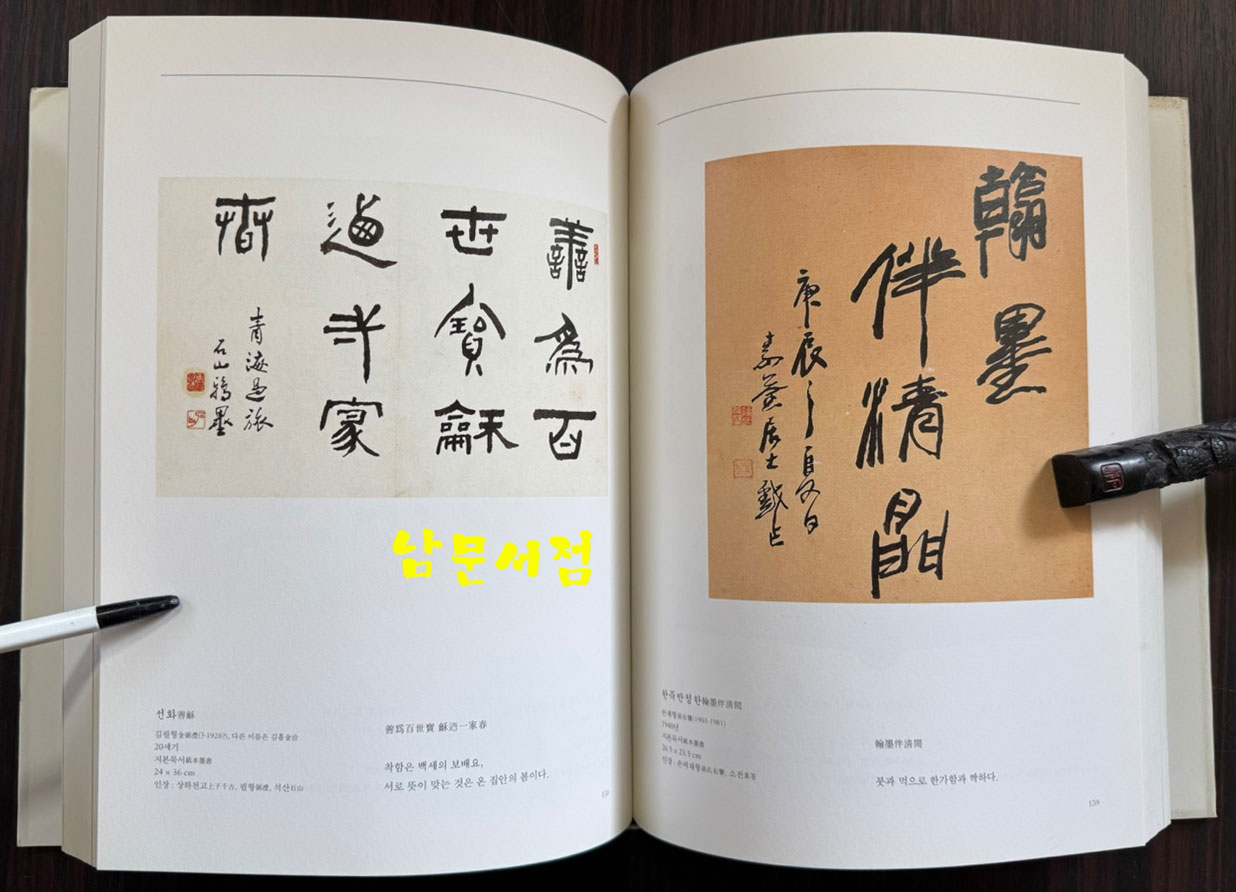 善爲百
世寶龢
迺弌家
春
石山
남문서점
선화善龢
20세기
지본묵서紙本墨書
24 × 36 cm
인장 : 상하천고上下千古, 필형, 석산石山
善爲百世寶 龢迺一家春
착함은 백세의 보배요,
서로 뜻이 맞는 것은 온 집안의 봄이다.
翰墨
伴清閒
庚辰之夏日
素荃居士戲作
한묵반청한翰墨伴淸閒
손재형孫在馨(1903-1981)
1940년
지본묵서紙本墨書
26.5 × 23.5 cm
인장 : 손씨재형孫氏在馨, 소전素荃
翰墨伴淸閒
붓과 먹으로 한가함과 짝하다.
159